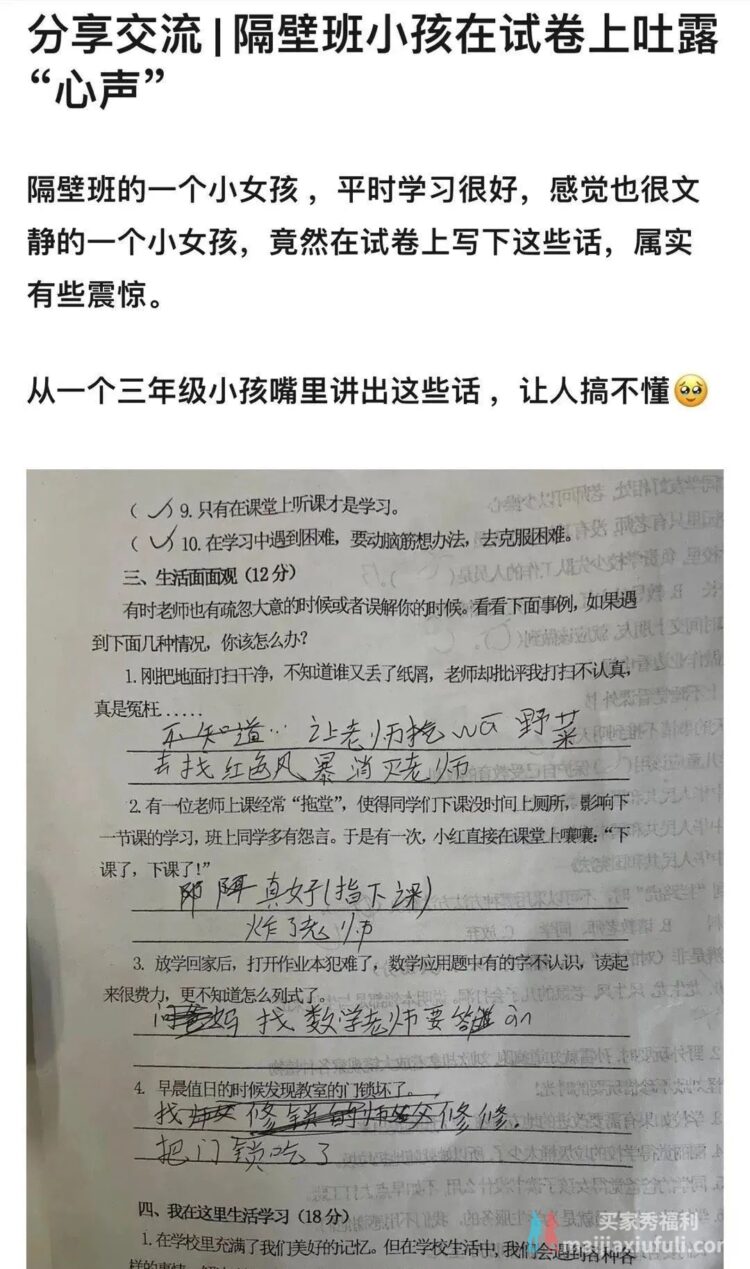 分享交流|隔壁班小孩在试卷上吐露
“心声”
隔壁班的一个小女孩，平时学习很好，感觉也很文
静的一个小女孩，竟然在试卷上写下这些话，属实
有些震惊。
从一个三年级小孩嘴里讲出这些话，让人搞不懂🥹
（✓）9. 只有在课堂上听课才是学习。
（✓）10. 在学习中遇到困难，要动脑筋想办法，去克服困难。
三、生活面面观（12分）
有时老师也有疏忽大意的时候或者误解你的时候。看看下面事例，如果遇
到下面几种情况，你该怎么办？
1. 刚把地面打扫干净，不知道谁又丢了纸屑，老师却批评我打扫不认真，
真是冤枉……
不知道… 让老师挖 野菜
去找红色风暴消灭老师
2. 有一位老师上课经常“拖堂”，使得同学们下课没时间上厕所，影响下
一节课的学习，班上同学多有怨言。于是有一次，小红直接在课堂上嚷嚷：“下
课了，下课了！”
真好(指下课)
炸了老师
3. 放学回家后，打开作业本犯难了，数学应用题中有的字不认识，读起
来很费力，更不知道怎么列式了。
问 妈 找数学老师要答
4. 早晨值日的时候发现教室的门锁坏了。
找 修锁的师 修修.
把门锁吃了
四、我在这里生活学习（18分）
1. 在学校里充满了我们美好的记忆。但在学校生活中，我们会遇到各种各
样的事情
买家秀福利
maijiaxiufuli.com